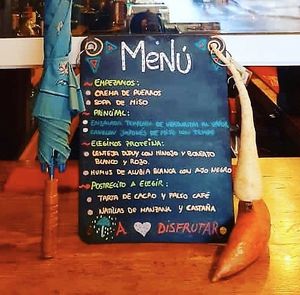 MENÚ
EMPEZAMOS:
CREMA DE PUERROS
SOPA DE MISO
PRINCIPAL:
ENSALADA TEMPLADA DE VERDURITAS AL VAPOR,
JAPONÉS DE MISO CON TEMPE
ELEGIMOS PROTEÍNA:
LENTEJA CON HINOJO Y BONIATO
BLANCO Y ROJO.
HUMUS DE ALUBIA BLANCA CON AJO NEGRO
POSTRECITO A ELEGIR:
TARTA DE CACAO Y FALSO CAFÉ
NATILLAS DE MANZANA Y CASTAÑA
A DISFRUTAR